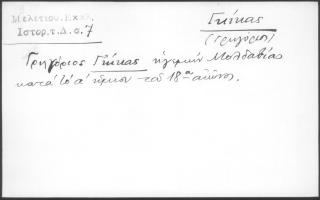 Μελετίου. Εκκλ.
Ιστορ. τ. Δ. σ. 7
Γκίκας
(Γρηγόριος)
Γρηγόριος Γκίκας ηγεμών Μολδαβίας
κατά το α' ήμισυ του 18ου αιώνος.